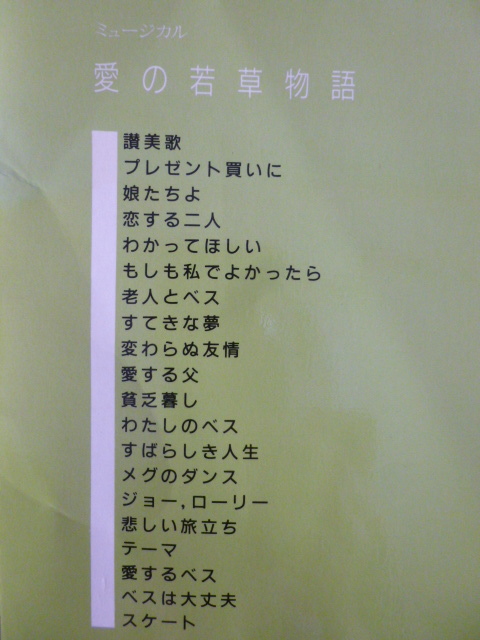 ミュージカル
愛の若草物語
讃美歌
プレゼント買いに
娘たちよ
恋する二人
わかってほしい
もしも私でよかったら
老人とベス
すてきな夢
変わらぬ友情
愛する父
貧乏暮し
わたしのベス
すばらしき人生
メグのダンス
ジョー,ローリー
悲しい旅立ち
テーマ
愛するベス
ベスは大丈夫
スケート